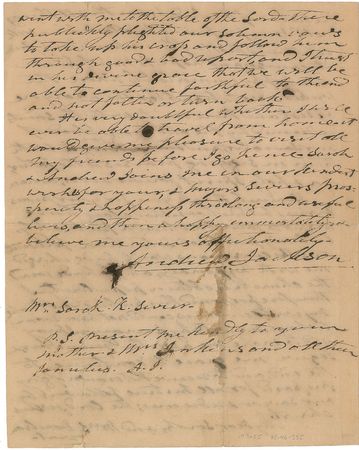 went with me to the table of the Lord & there
publickly plighted our solemn vows
to take up his cross and follow him
through good & bad report, and I trust
in his divine grace that we will be
able to continue faithful to the end
and not falter or turn back
It is very doubtful whether I will
ever be able to travel from home it
would give me pleasure to visit all
my friends before I go hence. Sarah
& Andrew Joins me in our kindest
wishes for your, & Majors Seviers pros-
perity & happiness through long and useful
lives, and then a happy immortality
believe me yours affectionately
Andrew Jackson
Mrs. Sarah K. Sevier
P.S. present me kindly to your
mother & Mrs and all their
families. A.J.